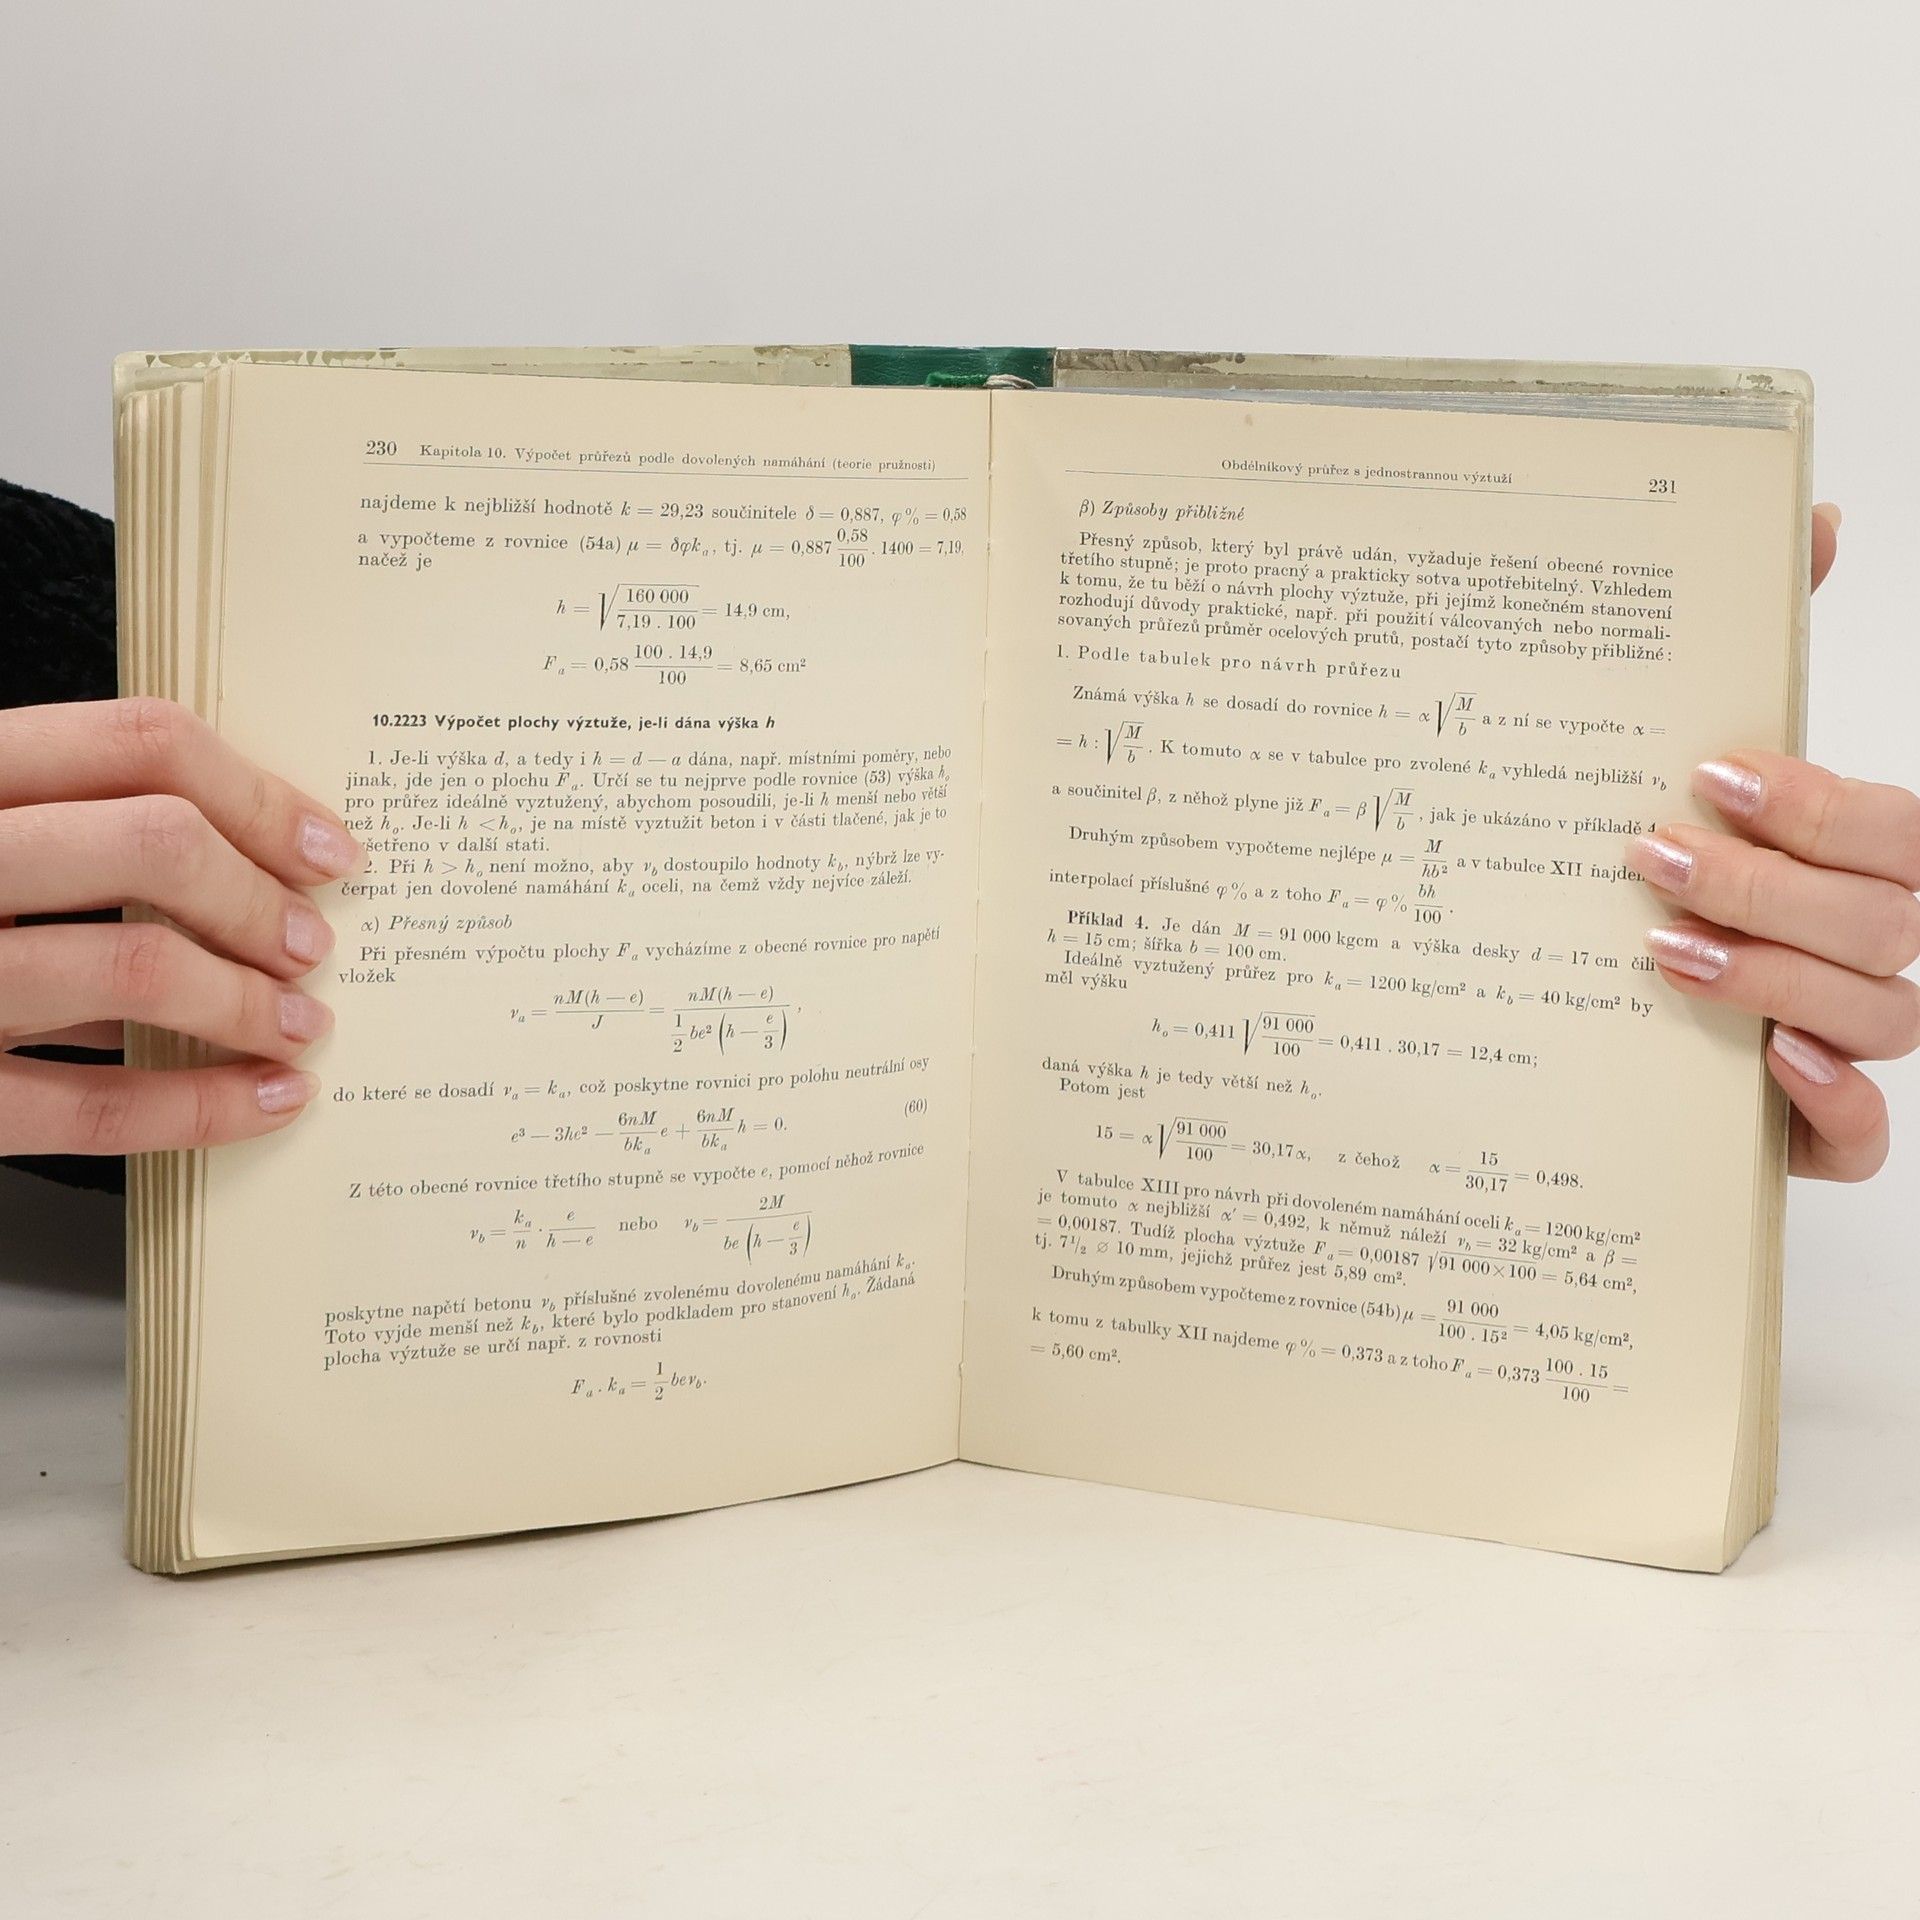 230 Kapitola 10. Výpočet průřezů podle dovolených namáhání (teorie pružnosti)
najdeme k nejbližší hodnotě k = 29,23 součinitele δ = 0,887, φ% = 0,58
a vypočteme z rovnice (54a) μ = δφkₐ, tj. μ = 0,887 0,58/100 . 1400 = 7,19,
načež je
h = √(160 000 / 7,19 . 100) = 14,9 cm,
Fₐ = 0,58 100 . 14,9 / 100 = 8,65 cm²
10.2223 Výpočet plochy výztuže, je-li dána výška h
1. Je-li výška d, a tedy i h = d — a dána, např. místními poměry, nebo
jinak, jde jen o plochu Fₐ. Určí se tu nejprve podle rovnice (53) výška hₒ
pro průřez ideálně vyztužený, abychom posoudili, je-li h menší nebo větší
než hₒ. Je-li h < hₒ, je na místě vyztužit beton i v části tlačené, jak je to
šetřeno v další stati.
2. Při h > hₒ není možno, aby ν_b dostoupilo hodnoty k_b, nýbrž lze vy-
čerpat jen dovolené namáhání kₐ oceli, na čemž vždy nejvíce záleží.
α) Přesný způsob
Při přesném výpočtu plochy Fₐ vycházíme z obecné rovnice pro napětí
vložek
νₐ = nM(h — e) / J = nM(h — e) / (1/2 be² (h — e/3)),
do které se dosadí νₐ = kₐ, což poskytne rovnici pro polohu neutrální osy
e³ — 3he² — 6nM/bkₐ e + 6nM/bkₐ h = 0. (60)
Z této obecné rovnice třetího stupně se vypočte e, pomocí něhož rovnice
ν_b = kₐ/n . e/(h — e) nebo ν_b = 2M / (be (h — e/3))
poskytne napětí betonu ν_b příslušné zvolenému dovolenému namáhání kₐ.
Toto vyjde menší než k_b, které bylo podkladem pro stanovení hₒ. Žádaná
plocha výztuže se určí např. z rovnosti
Fₐ . kₐ = 1/2 beν_b.
Obdélníkový průřez s jednostrannou výztuží 231
β) Způsoby přibližné
Přesný způsob, který byl právě udán, vyžaduje řešení obecné rovnice
třetího stupně; je proto pracný a prakticky sotva upotřebitelný. Vzhledem
k tomu, že tu běží o návrh plochy výztuže, při jejímž konečném stanovení
rozhodují důvody praktické, např. při použití válcovaných nebo normali-
sovaných průřezů průměr ocelových prutů, postačí tyto způsoby přibližné:
1. Podle tabulek pro návrh průřezu
Známá výška h se dosadí do rovnice h = α √(M/b) a z ní se vypočte α =
= h : √(M/b). K tomuto α se v tabulce pro zvolené kₐ vyhledá nejbližší ν_b
a součinitel β, z něhož plyne již Fₐ = β √(M/b), jak je ukázáno v příkladě 4
Druhým způsobem vypočteme nejlépe μ = M/hb² a v tabulce XII najdem
interpolací příslušné φ% a z toho Fₐ = φ% bh/100.
Příklad 4. Je dán M = 91 000 kgcm a výška desky d = 17 cm čili
h = 15 cm; šířka b = 100 cm.
Ideálně vyztužený průřez pro kₐ = 1200 kg/cm² a k_b = 40 kg/cm² by
měl výšku
hₒ = 0,411 √(91 000/100) = 0,411 . 30,17 = 12,4 cm;
daná výška h je tedy větší než hₒ.
Potom jest
15 = α √(91 000/100) = 30,17α, z čehož α = 15/30,17 = 0,498.
V tabulce XIII pro návrh při dovoleném namáhání oceli kₐ = 1200 kg/cm²
je tomuto α nejbližší α′ = 0,492, k němuž náleží ν_b = 32 kg/cm² a β =
= 0,00187. Tudíž plocha výztuže Fₐ = 0,00187 √(91 000×100) = 5,64 cm²,
tj. 7½ ⌀ 10 mm, jejichž průřez jest 5,89 cm².
Druhým způsobem vypočteme z rovnice (54b) μ = 91 000 / 100 . 15² = 4,05 kg/cm²,
k tomu z tabulky XII najdeme φ% = 0,373 a z toho Fₐ = 0,373 100 . 15 / 100 =
= 5,60 cm².